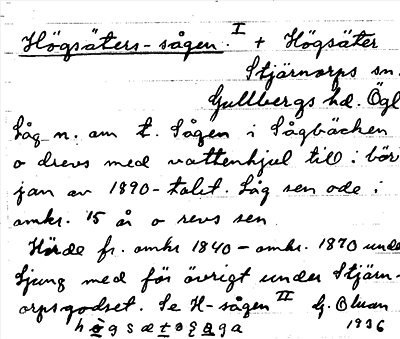 Högsäters-sågen. I + Högsäter
Stjärnorps sn.
Gullbergs hd. Ögl
Låg n. om t. Sågen i Sågbäcken
o drevs med vattenhjul till i bör
jan av 1890-talet. Låg sen öde i
omkr. 15 år o revs sen
Hörde fr. omkr 1840-omkr. 1870 unde
Ljung med för övrigt under Stjärn-
orpsgodset. Se H-sågen II G. Olson
högsætəsaga 1936